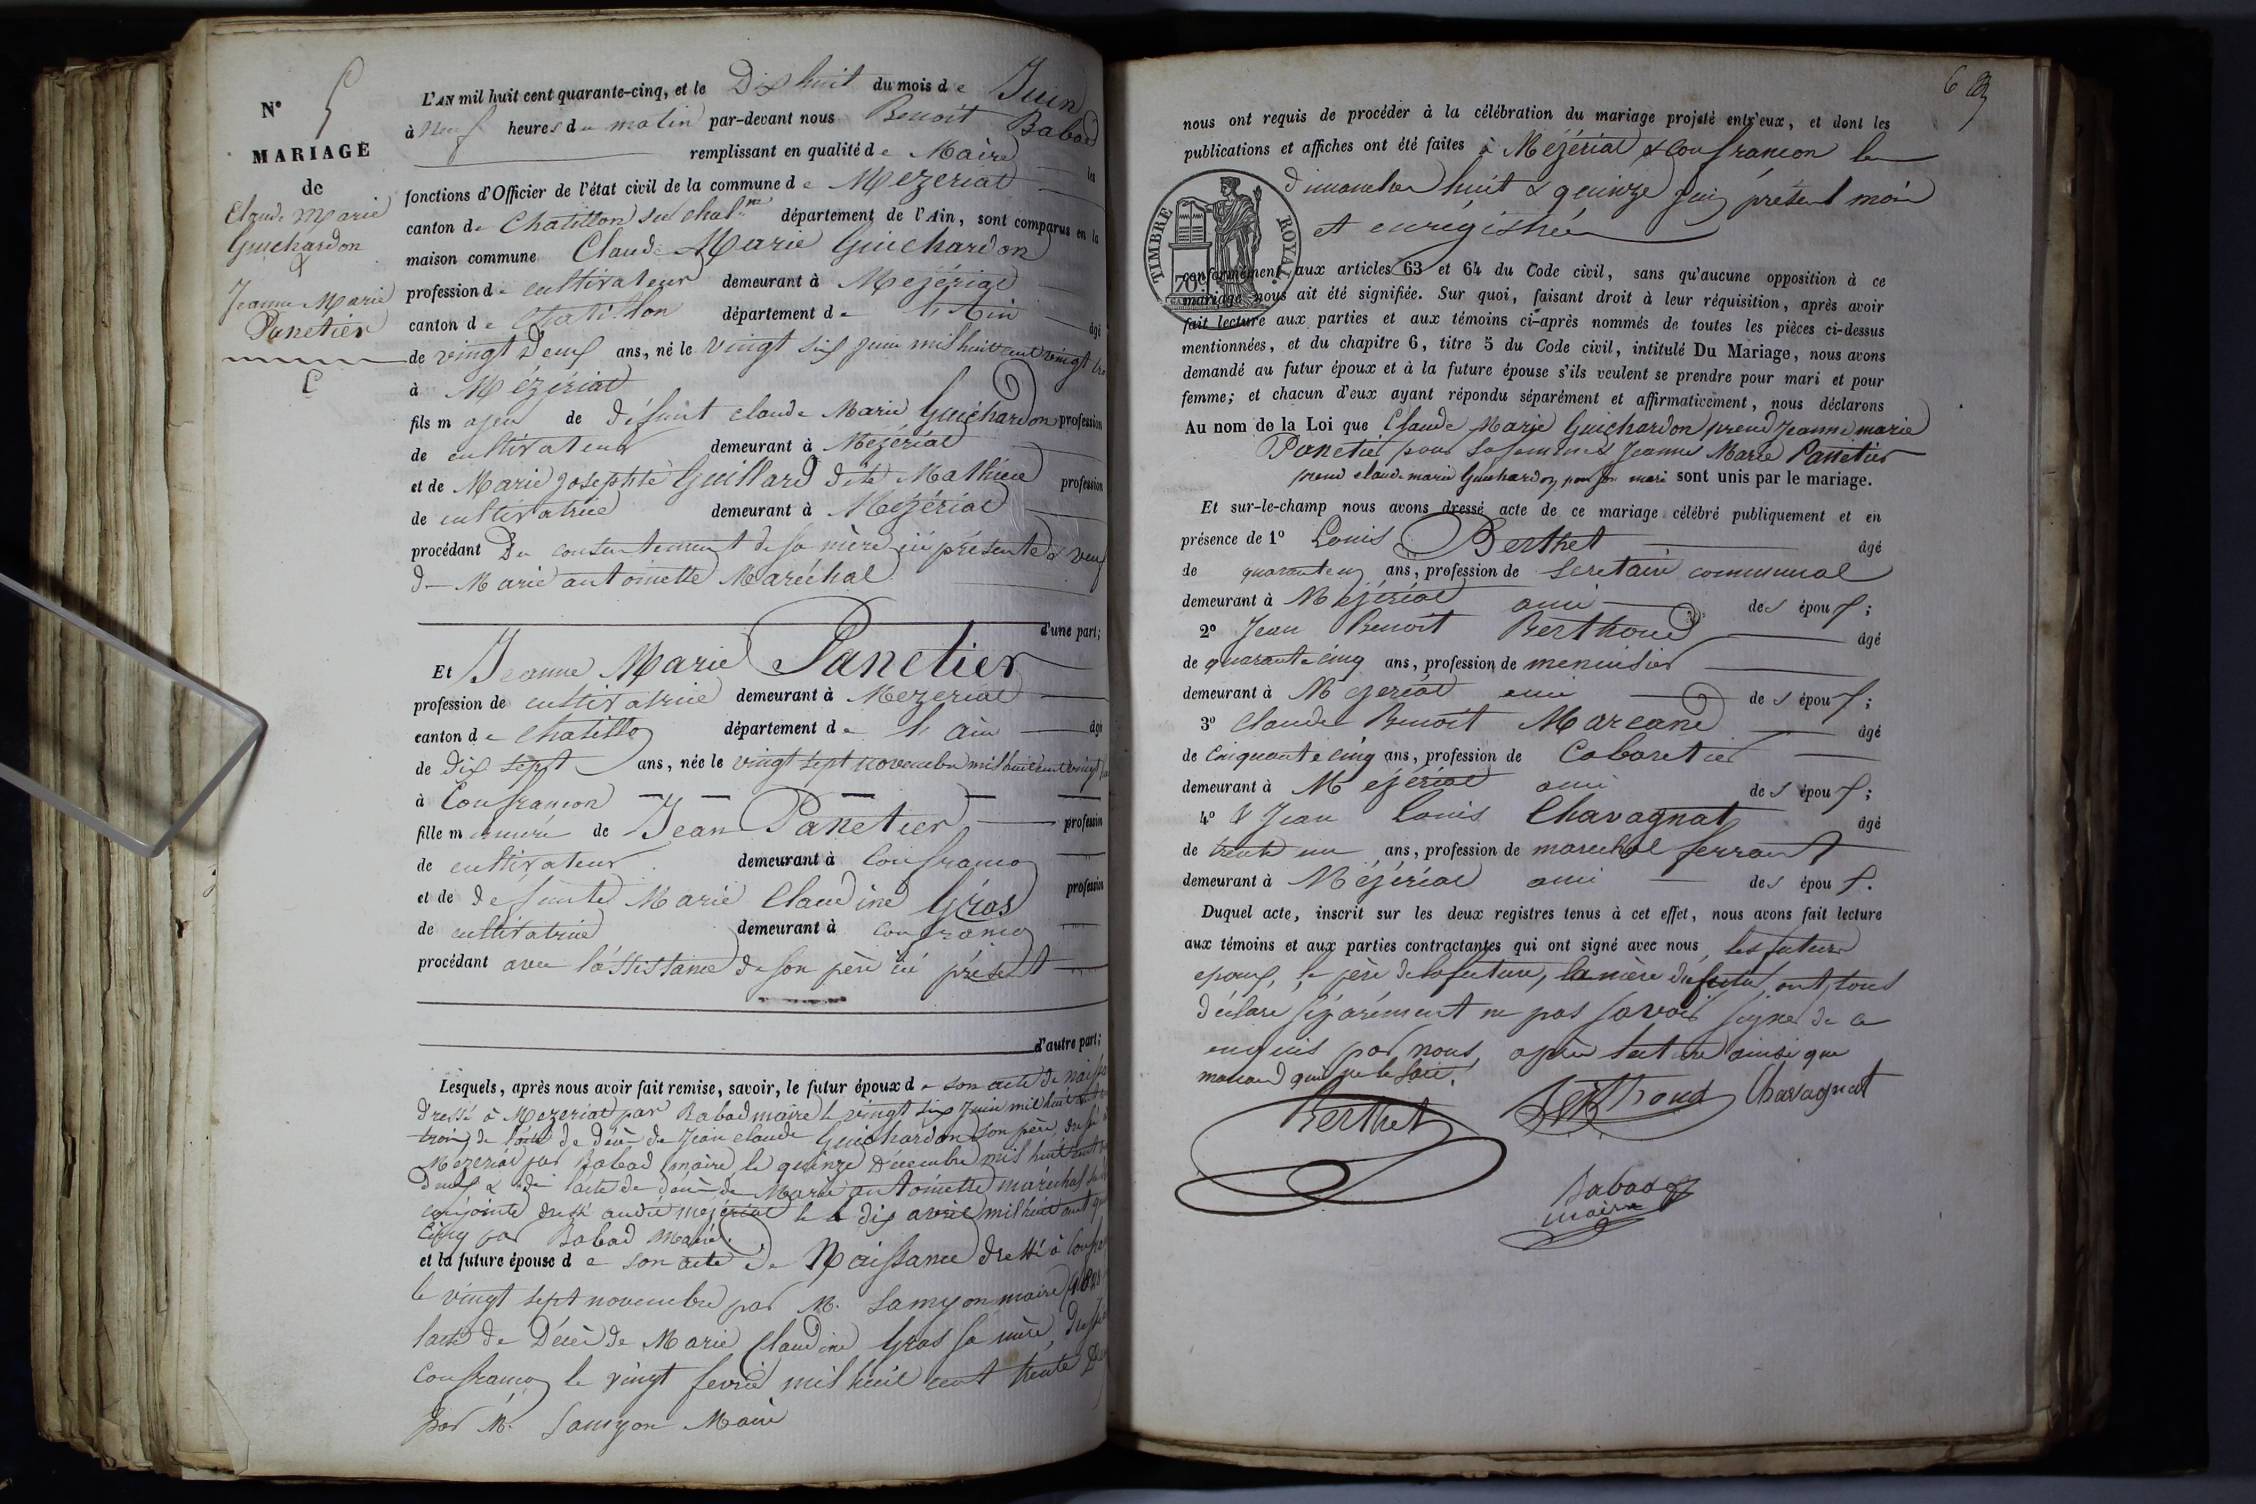 N° 5
MARIAGE
de
Claude Marie
Guichardon
&
Jeanne Marie
Panetier
L'AN mil huit cent quarante-cinq, et le Dix huit du mois de Juin
à neuf heures du matin par-devant nous Benoit Babad
remplissant en qualité de Maire les
fonctions d'Officier de l'état civil de la commune de Mezeriat
canton de Chatillon sur Chal.ne département de l'Ain, sont comparus en la
maison commune Claude Marie Guichardon
profession de cultivateur demeurant à Mezériat
canton de Chatillon département de l'Ain âgé
de vingt deux ans, né le vingt six juin mil huit cent vingt
à Mézériat
fils majeur de défunt claude Marie Guichardon profession
de cultivateur demeurant à Mezériat
et de Marie Josephte Guillard dite Mathieu profession
de cultivatrice demeurant à Mezériat
procédant Du consentement de sa mère ici présente & veuf
de Marie antoinette Maréchal
d'une part;
Et Jeanne Marie Panetier
profession de cultivatrice demeurant à Mezeriat
canton de Chatillon département de l'ain âgé
de dix sept ans, née le vingt sept novembre mil huit cent vingt
à Confrançon
fille mineure de Jean Panetier profession
de cultivateur demeurant à Confrançon
et de defunte Marie Claudine Gras profession
de cultivatrice demeurant à Confrançon
procédant avec l'assistance de son père ici présent
d'autre part;
Lesquels, après nous avoir fait remise, savoir, le futur époux de son acte de
dressé à Mezeriat par Babad maire le vingt six Juin mil huit cent
trois, de l'acte de décè de Jean claude Guichardon son père, dressé
Mezeriat par Babad maire le quinze Décembre mil huit cent
deux & de l'acte de décè de Marie antoinette maréchal
conjointe dressé audit mezériat le dix avril mil huit cent
Cinq par Babad Maire.
et la future épouse de son acte de Naissance dressé à
le vingt sept novembre par M. Samyon maire 1828
l'acte de Décè de Marie Claudine Gras sa mère,
Confrançon le vingt fevrier mil huit cent trente
par M. Samyon Maire
6
nous ont requis de procéder à la célébration du mariage projeté entr'eux, et dont les
publications et affiches ont été faites à Mézériat & Confrançon les
dimanches huit & quinze juin présent mois
et enrégistrées
TIMBRE ROYAL
70c
conformément aux articles 63 et 64 du Code civil, sans qu'aucune opposition à ce
mariage nous ait été signifiée. Sur quoi, faisant droit à leur réquisition, après avoir
fait lecture aux parties et aux témoins ci-après nommés de toutes les pièces ci-dessus
mentionnées, et du chapitre 6, titre 5 du Code civil, intitulé Du Mariage, nous avons
demandé au futur époux et à la future épouse s'ils veulent se prendre pour mari et pour
femme; et chacun d'eux ayant répondu séparément et affirmativement, nous déclarons
Au nom de la Loi que Claude Marie Guichardon prend Jeanne marie
Panetier pour sa femme & Jeanne Marie Panetier
prend claude marie Guichardon pour son mari sont unis par le mariage.
Et sur-le-champ nous avons dressé acte de ce mariage célébré publiquement et en
présence de 1° Louis Berthet âgé
de ans, profession de secretaire communal
demeurant à Mezériat ami des époux;
2° Jean Benoit Berthoud âgé
de quarante cinq ans, profession de menuisier
demeurant à Mezeriat ami des époux;
3° Claude Benoit Marcand âgé
de cinquante cinq ans, profession de Cabaretier
demeurant à Mezériat ami des époux;
4° & Jean Louis Chavagnat âgé
de trente un ans, profession de marechal ferrant
demeurant à Mezériat ami des époux.
Duquel acte, inscrit sur les deux registres tenus à cet effet, nous avons fait lecture
aux témoins et aux parties contractantes qui ont signé avec nous, les futurs
epoux, le père de la future, la mère du futur, ont tous
déclaré séparément ne pas savoir signer de ce
enquis par nous, après lecture ainsi que
marcand
Berthet Berthoud Chavagnat
Babad
maire